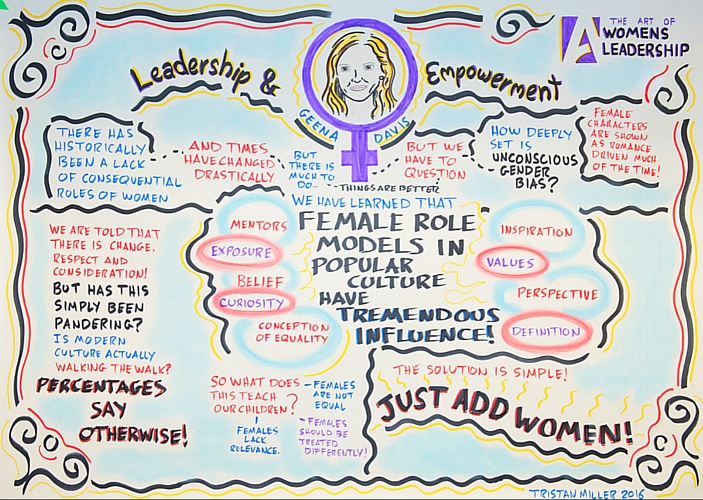 THE ART OF
WOMENS
LEADERSHIP
Leadership & Empowerment
GEENA DAVIS
THERE HAS
HISTORICALLY
BEEN A LACK
OF CONSEQUENTIAL
ROLES OF WOMEN
AND TIMES
HAVE CHANGED
DRASTICALLY
BUT
THERE IS
MUCH TO
DO..
THINGS ARE BETTER
BUT WE
HAVE TO
QUESTION
HOW DEEPLY
SET IS
UNCONSCIOUS
GENDER
BIAS?
FEMALE
CHARACTERS
ARE SHOWN
AS ROMANCE
DRIVEN MUCH
OF THE TIME!
WE ARE TOLD THAT
THERE IS CHANGE.
RESPECT AND
CONSIDERATION!
BUT HAS THIS
SIMPLY BEEN
PANDERING?
IS MODERN
CULTURE ACTUALLY
WALKING THE WALK?
PERCENTAGES
SAY
OTHERWISE!
MENTORS
EXPOSURE
BELIEF
CURIOSITY
CONCEPTION
OF EQUALITY
WE HAVE LEARNED THAT
FEMALE ROLE
MODELS IN
POPULAR
CULTURE
HAVE
TREMENDOUS
INFLUENCE!
INSPIRATION
VALUES
PERSPECTIVE
DEFINITION
SO WHAT DOES
THIS TEACH
OUR CHILDREN?
FEMALES
LACK
RELEVANCE.
- FEMALES
ARE NOT
EQUAL
- FEMALES
SHOULD BE
TREATED
DIFFERENTLY!
THE SOLUTION IS SIMPLE!
JUST ADD WOMEN!
TRISTAN MILLER 2016